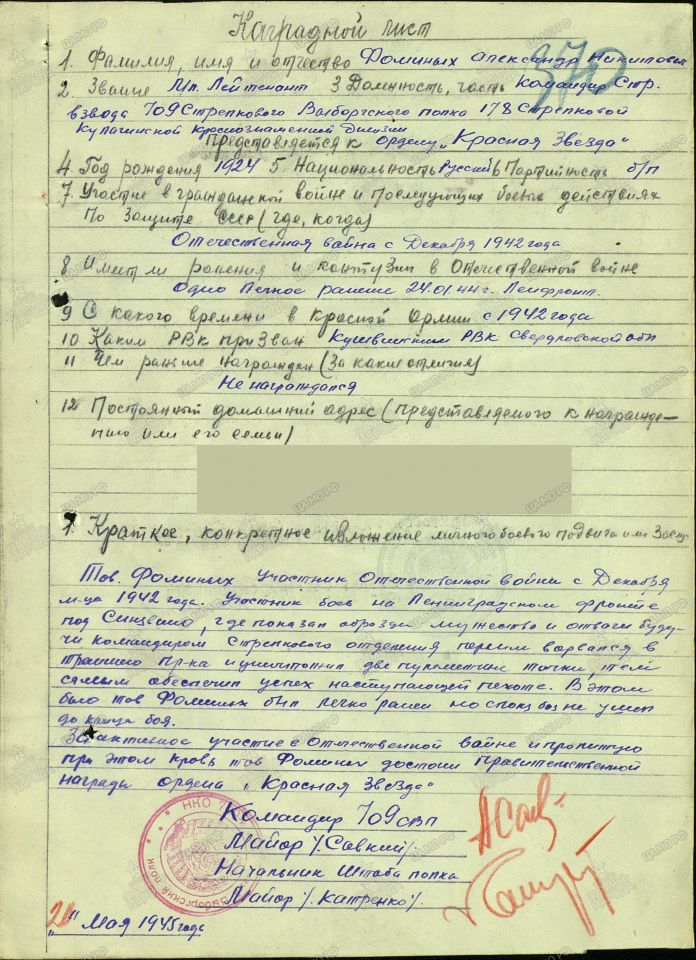 Наградной лист
370
1. Фамилия, имя и отчество Фоминых Александр Никитович
2. Звание Мл. Лейтенант 3 Должность, часть Командир Стр.
взвода 709 Стрелкового Выборгского полка 178 Стрелковой
Кулагинской Краснознаменной Дивизии
Представляется к ордену „Красная Звезда"
4. Год рождения 1924 5 Национальность Русский 6 Партийность б/п
7. Участие в гражданской войне и последующих боевых действиях
по защите СССР (где, когда)
Отечественная война с Декабря 1942 года
8 Имеет ли ранения и контузии в Отечественной войне
Одно Легкое ранение 24.01.44 г. Ленфронт.
9 С какого времени в Красной армии с 1942 года
10 Каким РВк призван Кушвинским РВк Свердловской обл
11 Чем раньше награжден (За какие отличия)
Не награждался
12 Постоянный домашний адрес (представляемого к награжде-
нию или его семьи)
1. Краткое, конкретное изложение личного боевого подвига или Заслу-
Тов. Фоминых участник Отечественной войны с Декабря
м-ца 1942 года. Участник боев на Ленинградском фронте
под Синявино, где показал образцы мужества и отваги буду-
чи командиром Стрелкового отделения первым ворвался в
траншею пр-ка и уничтожил две пулеметные точки, тем
самым обеспечил успех наступающей пехоте. В этом
бою тов Фоминых был легко ранен но с поля боя не ушел
до конца боя.
За активное участие в Отечественной войне и пролитую
при этом кровь тов Фоминых достоин Правительственной
награды ордена „Красная Звезда"
Командир 709 СВП
Майор /. Савкин/.
Начальник Штаба полка
Майор /. Катренко/.
НКО
Выборгский полк
„21" Мая 1945 года
ЦАМО.РФ